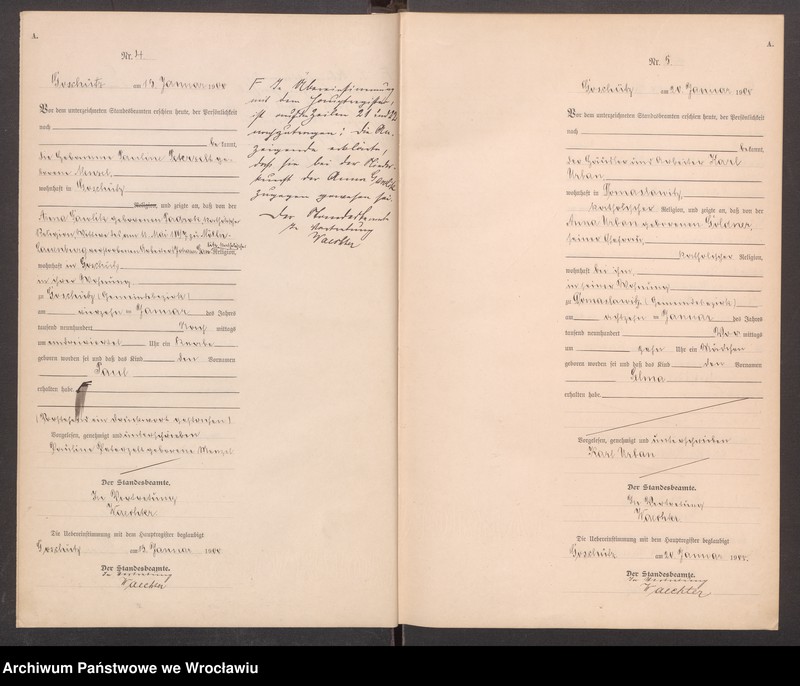 A.
Nr. 4
Goschütz am 15. Januar 1900
Vor dem unterzeichneten Standesbeamten erschien heute, der Persönlichkeit
nach
bekannt,
die Hebamme Pauline geborene
wohnhaft in Goschütz
Religion, und zeigte an, daß von der
Anna geborenen katholischer
Religion, 11. Mai
Religion,
wohnhaft in Goschütz
in ihrer Wohnung
zu Goschütz (Gemeindebezirk)
am vierzehn ten Januar des Jahres
tausend neunhundert Nach mittags
um Uhr ein Knabe
geboren worden sei und daß das Kind den Vornamen
Paul
erhalten habe.
(Vorstehend ein Druckwort gestrichen).
Vorgelesen, genehmigt und unterschrieben
Pauline geborene Menzel
Der Standesbeamte.
In Vertretung
Waechter
Die Uebereinstimmung mit dem Hauptregister beglaubigt
Goschütz am 15. Januar 1900
Der Standesbeamte.
In Vertretung
Waechter
In Übereinstimmung
mit dem Hauptregister,
ist auf Zeilen 21 und 22
nachzutragen: Die An-
zeigende erklärte,
daß sie bei der Nieder-
kunft der Anna
zugegen gewesen sei.
Der Standesbeamte
In Vertretung
Waechter
A.
Nr. 5
Goschütz am 20. Januar 1900
Vor dem unterzeichneten Standesbeamten erschien heute, der Persönlichkeit
nach
bekannt,
der Häusler und Arbeiter Karl
Urban
wohnhaft in Domaslawitz,
katholischer Religion, und zeigte an, daß von der
Anna Urban geborenen
seiner Ehefrau,
katholischer Religion,
wohnhaft bei ihm,
in seiner Wohnung
zu Domaslawitz (Gemeindebezirk)
am achtzehn ten Januar des Jahres
tausend neunhundert Vor mittags
um zehn Uhr ein Mädchen
geboren worden sei und daß das Kind den Vornamen
Selma
erhalten habe.
Vorgelesen, genehmigt und unterschrieben
Karl Urban
Der Standesbeamte.
In Vertretung
Waechter
Die Uebereinstimmung mit dem Hauptregister beglaubigt
Goschütz am 20. Januar 1900.
Der Standesbeamte.
In Vertretung
Waechter
Archiwum Państwowe we Wrocławiu